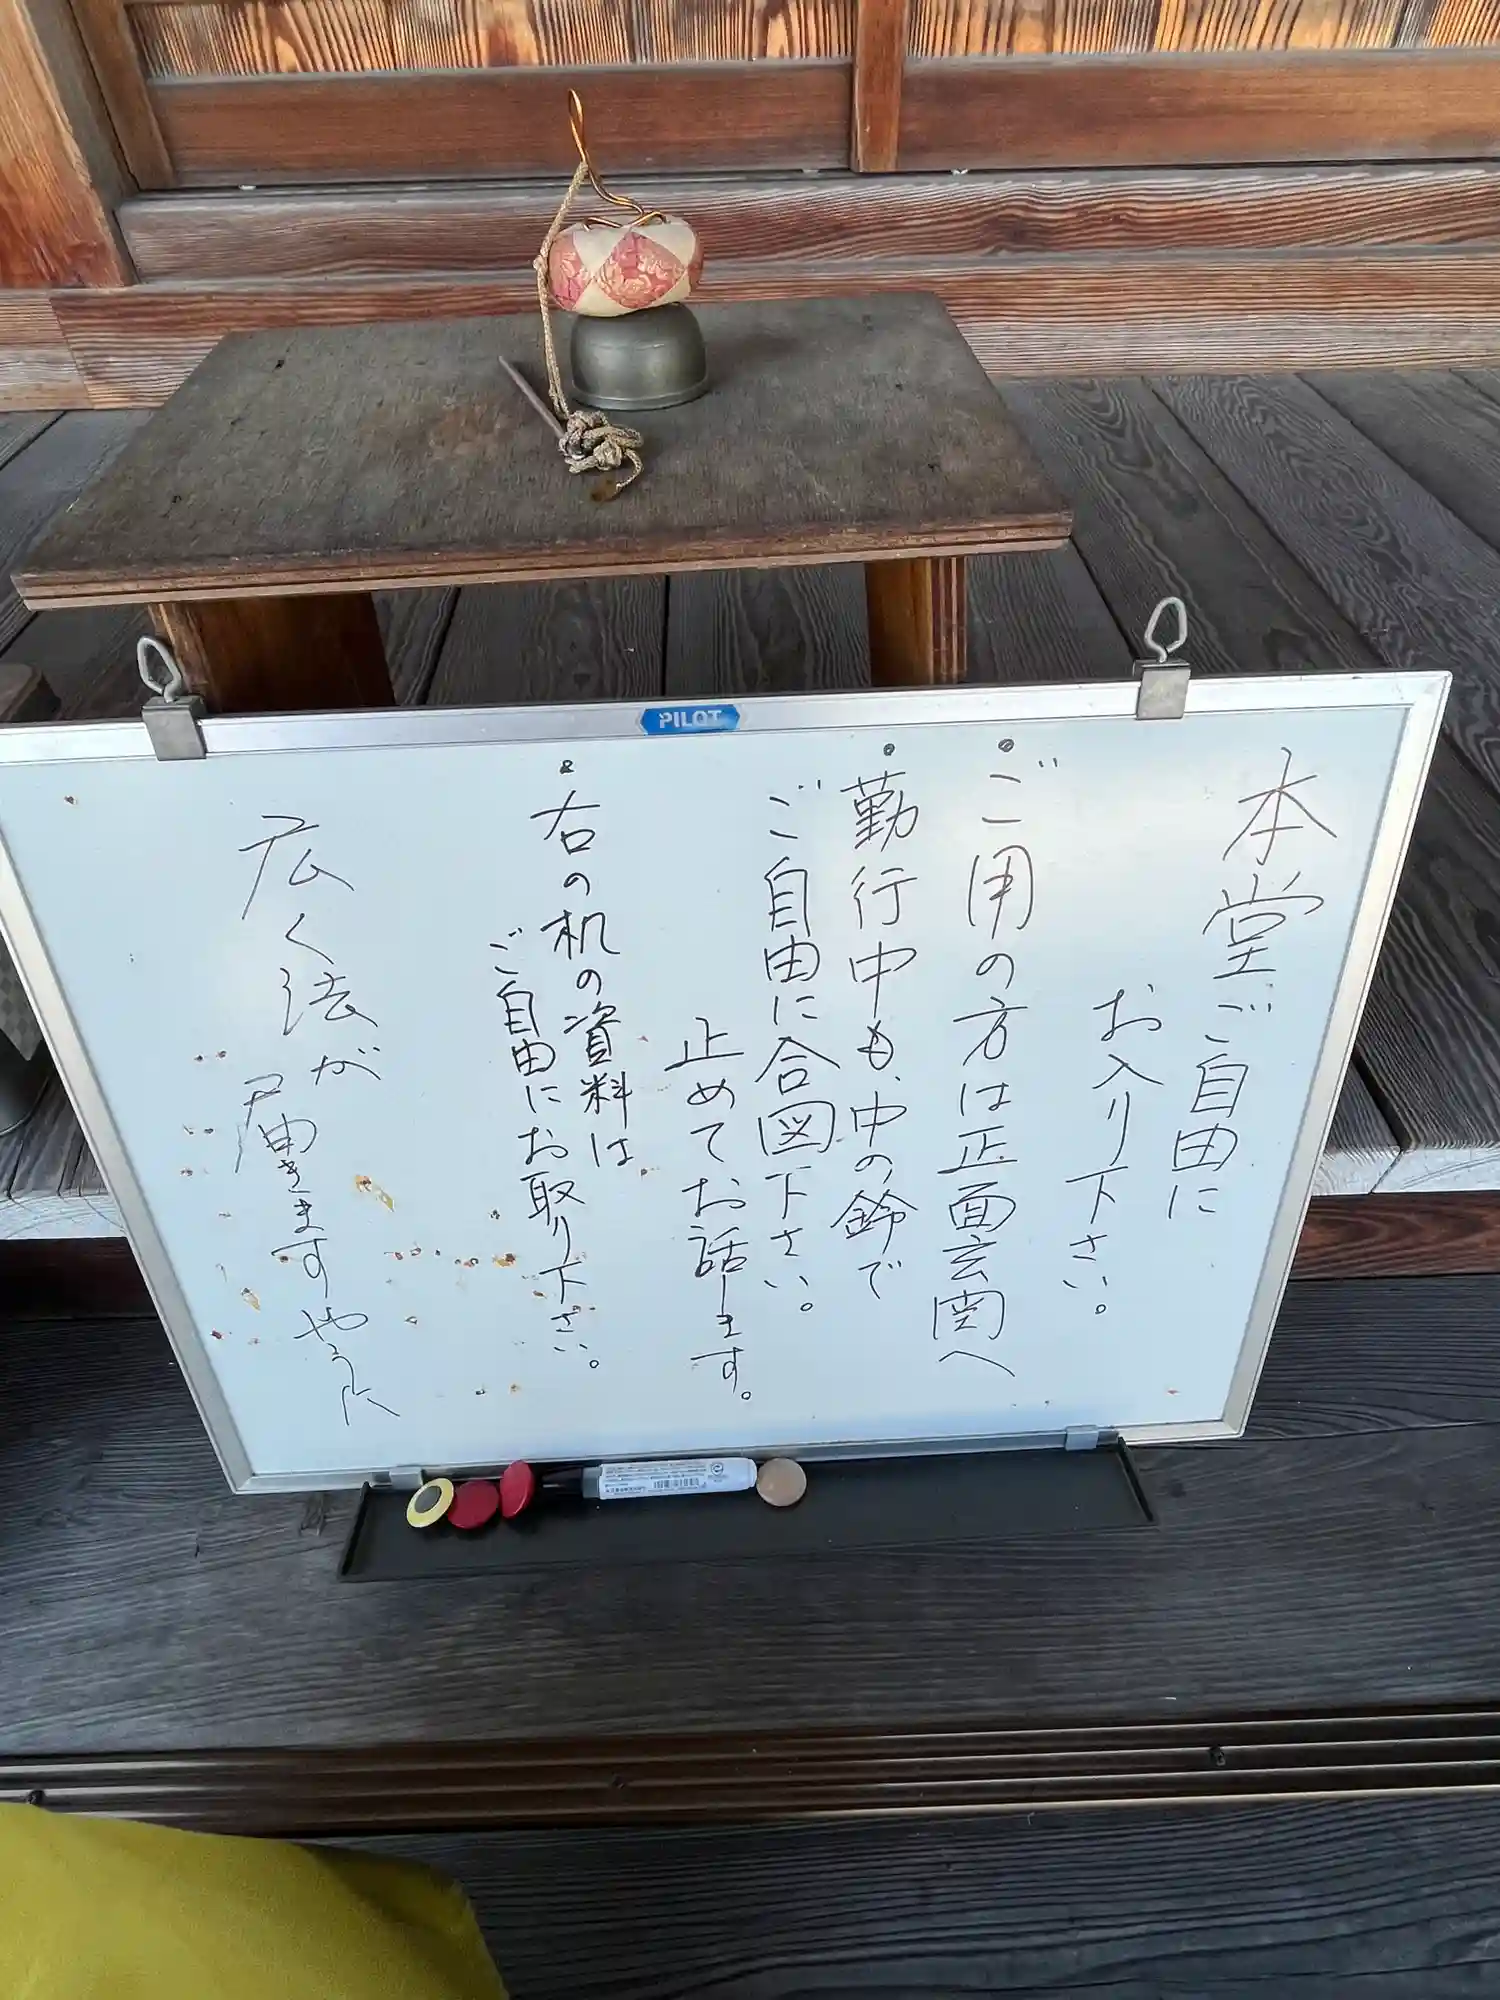 PILOT
本堂ご自由に
お入り下さい。
・ご用の方は正面玄関へ
・勤行中も、中の鈴で
ご自由に合図下さい。
止めてお話します。
・右の机の資料は
ご自由にお取り下さい。
広く法が
届きますやうに